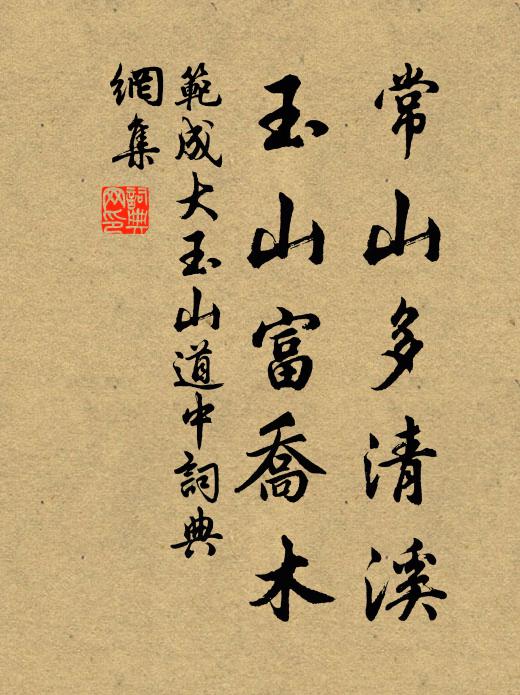 常山多清溪
玉山富喬木
範成大玉山道中詞典
網集
詞典網印